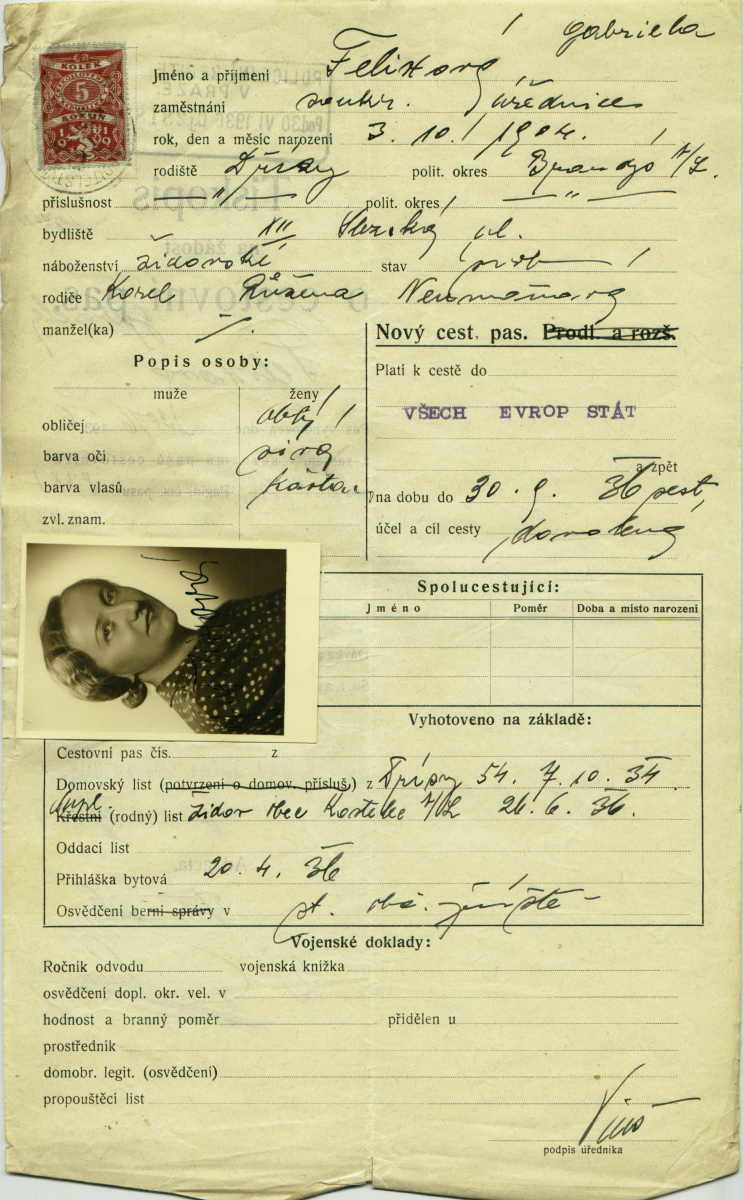 Gabriela
KOLEK
5
KORUN
1919
Jméno a příjmení Felixová
zaměstnání soukr. úřednice
rok, den a měsíc narození 3. 10. 1904.
rodiště Dřísy polit. okres Brandýs n/L.
příslušnost — " — polit. okres — " —
bydliště XII Slezská ul.
náboženství židovské stav
rodiče Karel Růžena Neumannová
manžel(ka) /.
Nový cest. pas. Prodl. a rozš.
Popis osoby:
Platí k cestě do
muže ženy
VŠECH EVROP STÁT
obličej oblý
barva očí sivá
a zpět
barva vlasů kaštan.
na dobu do 30. 9. 36
zvl. znam.
účel a cíl cesty dovolená
Spolucestující:
Jméno Poměr Doba a místo narození
Vyhotoveno na základě:
Cestovní pas čís. z
Domovský list (potvrzení o domov. přísluš.) z Dřísy 54. 7. 10. 34.
Křestní (rodný) list židov obec Kostelec n/L 26. 6. 36.
Oddací list
Přihláška bytová 20. 4. 36
Osvědčení berní správy v
Vojenské doklady:
Ročník odvodu vojenská knížka
osvědčení dopl. okr. vel. v
hodnost a branný poměr přidělen u
prostředník
domobr. legit. (osvědčení)
propouštěcí list
podpis úředníka